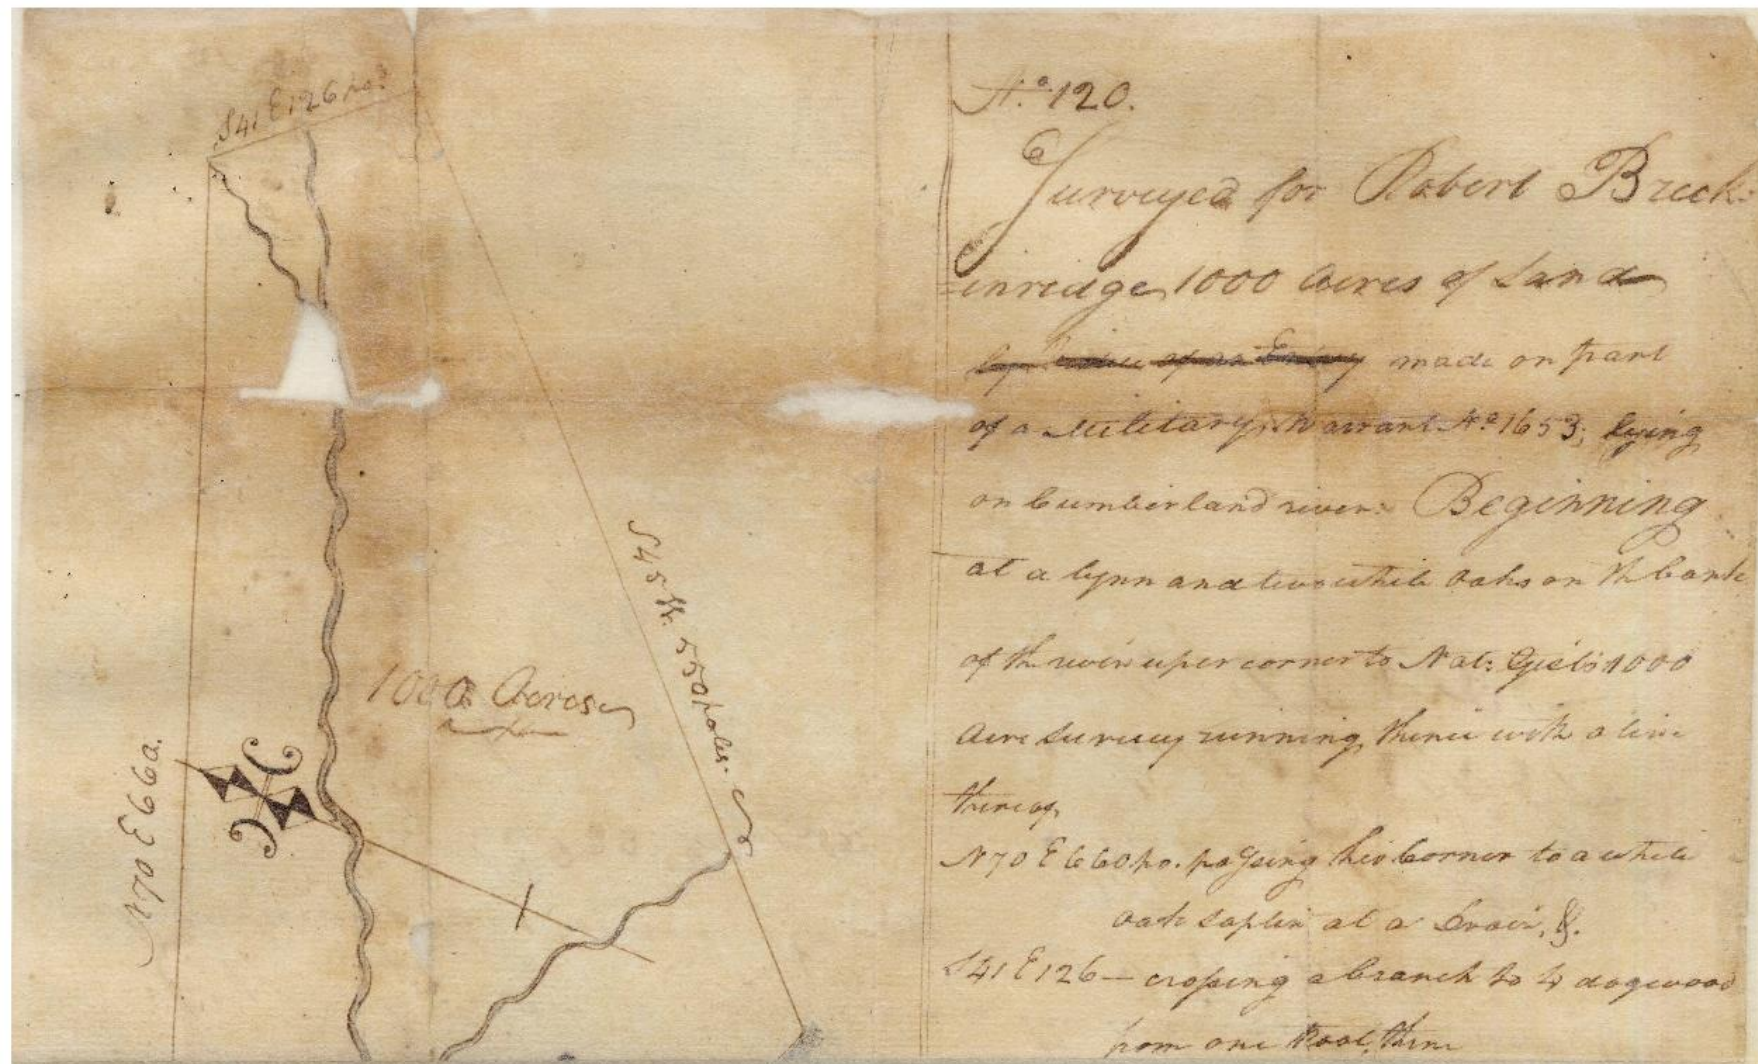 S41 E126 po.
N70 E 660.
1000 Acres
S45 W. 550 poles.
No. 120.
Surveyed for Robert Breck:
=inridge 1000 Acres of Land
by virtue of an Entry made on part
of a Military Warrant No 1653; lying
on Cumberland river: Beginning
at a lynn and two white oaks on th bank
of th river uper corner to Nat: Gist's 1000
Acre survey running thence with a line
thereof
N70 E 660 po. passing his Corner to a white
oak saplin at a Drain, &.
S41 E126 — crossing a branch to 4 dogwood
from one Root, then